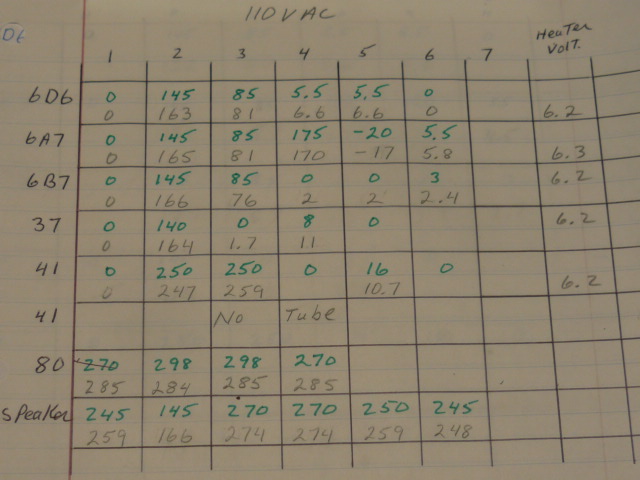 110 VAC
D6
1 2 3 4 5 6 7 Heater Volt.
6D6 0 145 85 5.5 5.5 0
0 163 81 6.6 6.6 0 6.2
6A7 0 145 85 175 -20 5.5
0 165 81 170 -17 5.8 6.3
6B7 0 145 85 0 0 3 6.2
0 166 76 2 2 2.4
37 0 140 0 8 0 6.2
0 164 1.7 11
41 0 250 250 0 16 0
0 247 259 10.7 6.2
41 No Tube
80 270 298 298 270
285 284 285 285
Speaker 245 145 270 270 250 245
259 166 274 274 259 248